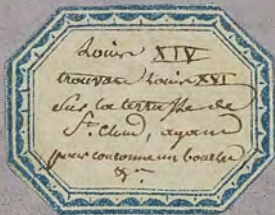 Louis XIV
trouvant Louis XVI
sur la terrasse de
St. Cloud, ayant
pour couronne un bourlet
&c.